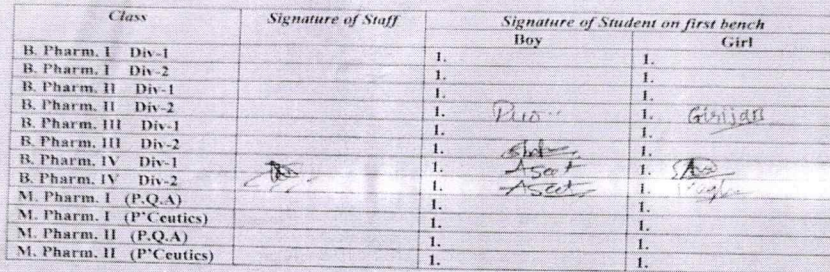 Class Signature of Staff Signature of Student on first bench
Boy Girl
B. Pharm. I Div-1 1. 1.
B. Pharm. I Div-2 1. 1.
B. Pharm. II Div-1 1. 1.
B. Pharm. II Div-2 1. 1.
B. Pharm. III Div-1 1. 1.
B. Pharm. III Div-2 1. 1.
B. Pharm. IV Div-1 1. 1.
B. Pharm. IV Div-2 1. 1.
M. Pharm. I (P.Q.A) 1. 1.
M. Pharm. I (P'Ceutics) 1. 1.
M. Pharm. II (P.Q.A) 1. 1.
M. Pharm. II (P'Ceutics) 1. 1.